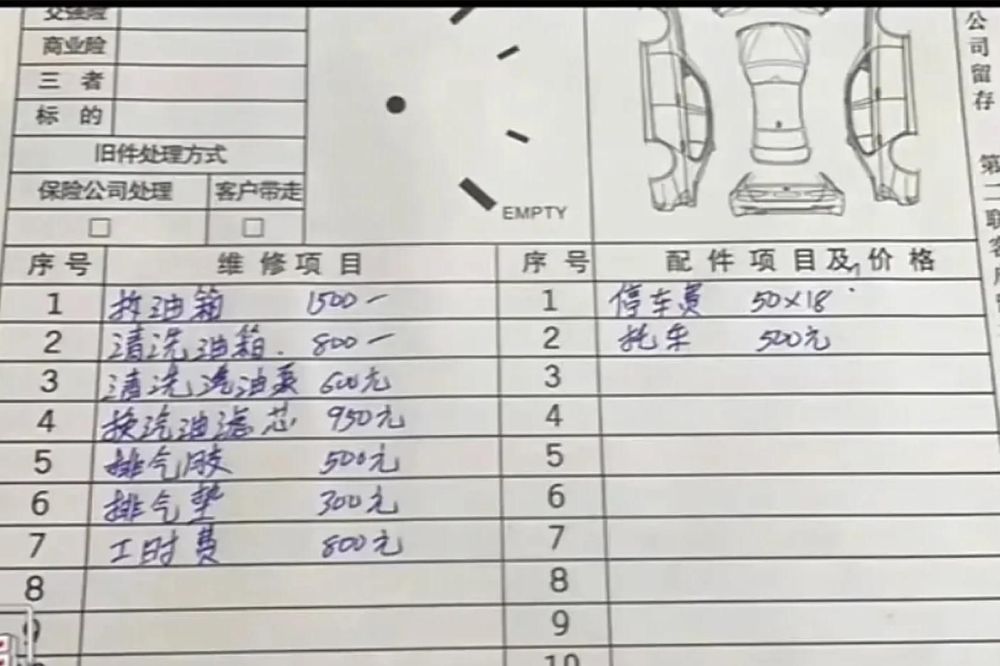 交强险
商业险
三 者
标 的
旧件处理方式
保险公司处理 客户带走
□ □
EMPTY
公司留存
第二联
序号 维修项目 序号 配件项目及价格
1 拆油箱 1500一 1 停车费 50×18
2 清洗油箱. 800一 2 托车 500元
3 清洗汽油泵 600元 3
4 换汽油滤芯 950元 4
5 排气胶 500元 5
6 排气垫 300元 6
7 工时费 800元 7
8 8
9 9
10